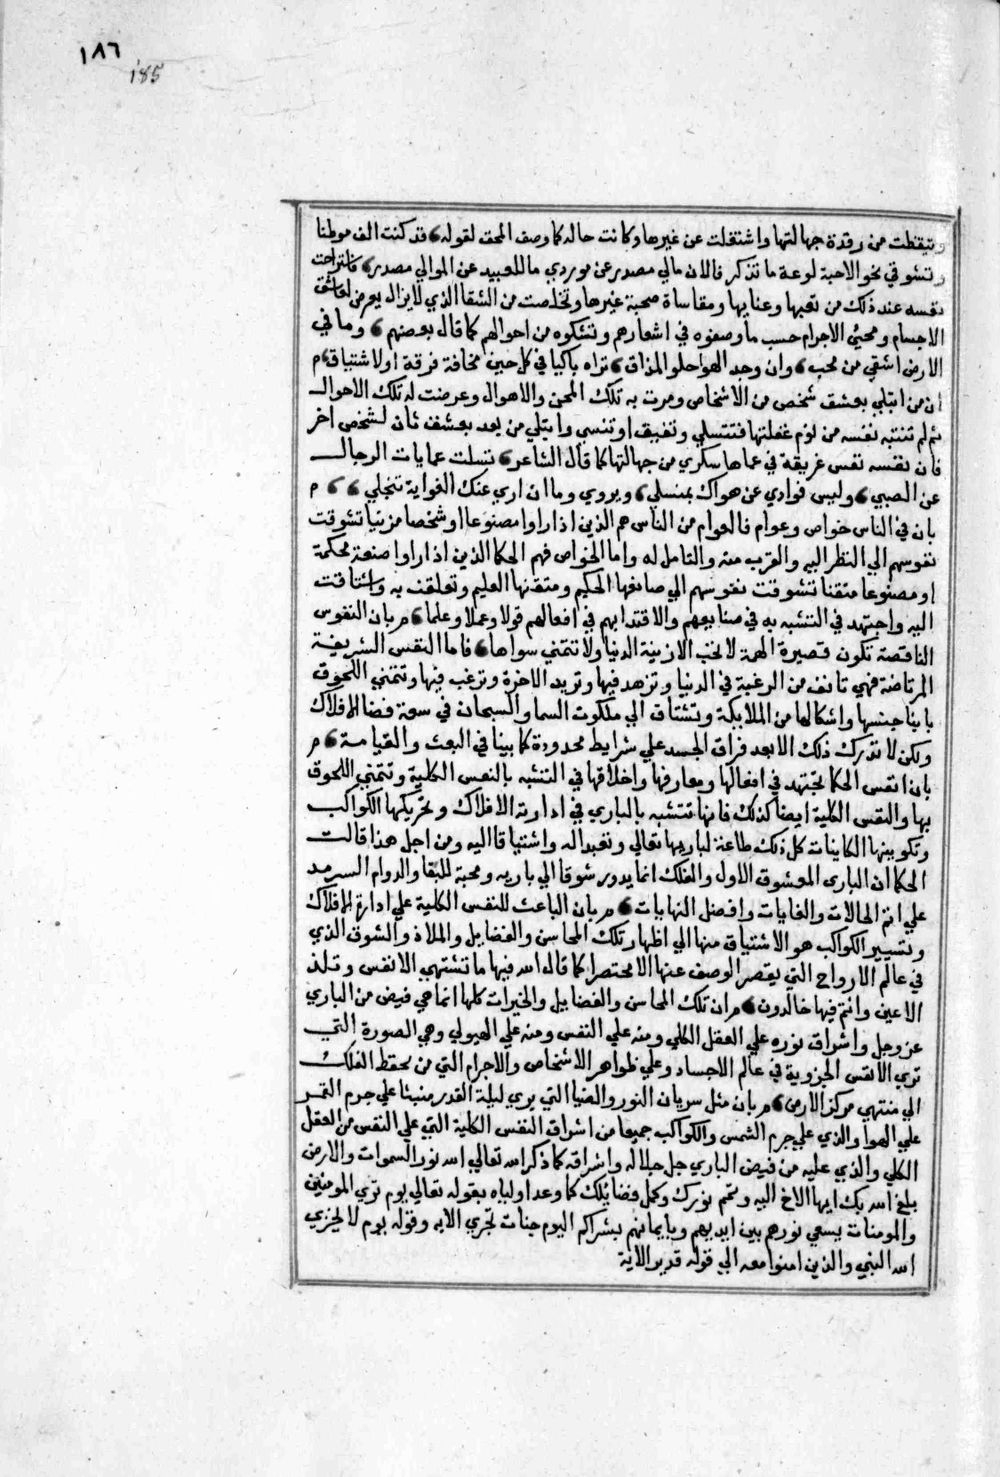 ١٨٦
185
وتيقظت من رقدة جهالتها واشتغلت عن غيرها وكانت حاله كما وصف المحب لقوله قد كنت الف موطنا
وتشوقي نحو الاحبة لوعة ما تذكر فالان مالي مصدر عن موردي ما للعبيد عن الموالي مصدر فاستراحت
نفسه عند ذلك من تعبها وعنايها ومقاساة صحبة غيرها وتخلصت من الشقا الذي لا يزال يعرض لعاشق
الاجسام ومحبي الاجرام حسب ما وصفوه في اشعارهم وتشكوه من احوالهم كما قال بعضهم وما في
الارض اشقي من محب وان وجد الهوا حلو المذاق تراه باكيا في كل حين مخافة فرقة او لاشتياق م
ان من ابتلي بعشق شخص من الاشخاص ومرت به تلك المحن والاهوال وعرضت له تلك الاحوال
ثم لم تنتبه نفسه من نوم غفلتها فتتسلي وتفيق او تنسي وابتلي من بعد بعشق ثان لشخص اخر
فان نفسه نفس غريقة في عماها سكري من جهالتها كما قال الشاعر تسلت عمايات الرجال
عن الصبي وليس فوادي عن هواك بمنسلي ويروي وما ان اري عنك الغواية تنجلي م
بان في الناس خواص وعوام فالعوام من الناس هم الذين اذا راوا مصنوعا او شخصا مزينا تشوقت
نفوسهم الي النظر اليه والقرب منه والتامل له واما الخواص فهم الحكما الذين اذا راوا صنعة محكمة
او مصنوعا متقنا تشوقت نفوسهم الي صانعها الحكيم ومتقنها العليم وتعلقت به واشتاقت
اليه واجتهد في التشبه به في صنايعهم والاقتدا بهم في افعالهم قولا وعملا وعلما م بان النفوس
الناقصة تكون قصيرة الهمة لا تحب الا زينة الدنيا ولا تتمني سواها فاما النفس الشريفة
المرتاضة فهي تانف من الرغبة في الدنيا وتزهد فيها وتريد الاخرة وترغب فيها وتتمني اللحوق
بابنا جنسها واشكالها من الملايكة وتشتاق الي ملكوت السما والسبحان في سعة فضا الافلاك
ولكن لا تدرك ذلك الا بعد فراق الجسد علي شرايط محدودة كما بينا في البعث والقيامة م
بان انفس الحكما تجتهد في افعالها ومعارفها واخلاقها في التشبه بالنفس الكلية وتتمني اللحوق
بها والنفس الكلية ايضا كذلك فانها تتشبه بالباري في ادارته الافلاك وتحريكها الكواكب
وتكوينها الكاينات كل ذلك طاعة لباريها تعالي وتعبدا له واشتياقا اليه ومن اجل هذا قالت
الحكما ان الباري المعشوق الاول والفلك انما يدور شوقا الي باريه ومحبة للبقا والدوام السرمد
علي اتم الحالات والغايات وافضل النهايات م بان الباعث للنفس الكلية علي ادارة الافلاك
وتسيير الكواكب هو الاشتياق منها الي اظهار تلك المحاسن والفضايل والملاذ والشوق الذي
في عالم الارواح التي يقصر الوصف عنها الا مختصرا كما قال الله فيها ما تشتهي الانفس وتلذ
الاعين وانتم فيها خالدون م ان تلك المحاسن والفضايل والخيرات كلها انما هي فيض من الباري
عز وجل واشراق نوره علي العقل الكلي ومنه علي النفس ومنه علي الهيولي وهي الصورة التي
تري الانفس الجزوية في عالم الاجساد وعلي ظواهر الاشخاص والاجرام التي من محيط الفلك
الي منتهي مركز الارض م بان مثل سريان النور والضيا التي يري ليلة القدر منبثا علي جرم القمر
علي الهوا والذي علي جرم الشمس والكواكب جميعا من اشراق النفس الكلية التي علي النفس من العقل
الكلي والذي عليه من فيض الباري جل جلاله واشراقه كما ذكر الله تعالي الله نور السموات والارض
بلغ الله بك ايها الاخ اليه وتمم نورك وكمل فضايلك كما وعد اولياه بقوله تعالي يوم تري المومنين
والمومنات يسعي نورهم بين ايديهم وبايمانهم بشراكم اليوم جنات تجري الايه وقوله يوم لا يخزي
الله النبي والذين امنوا معه الي قوله قدير الاية